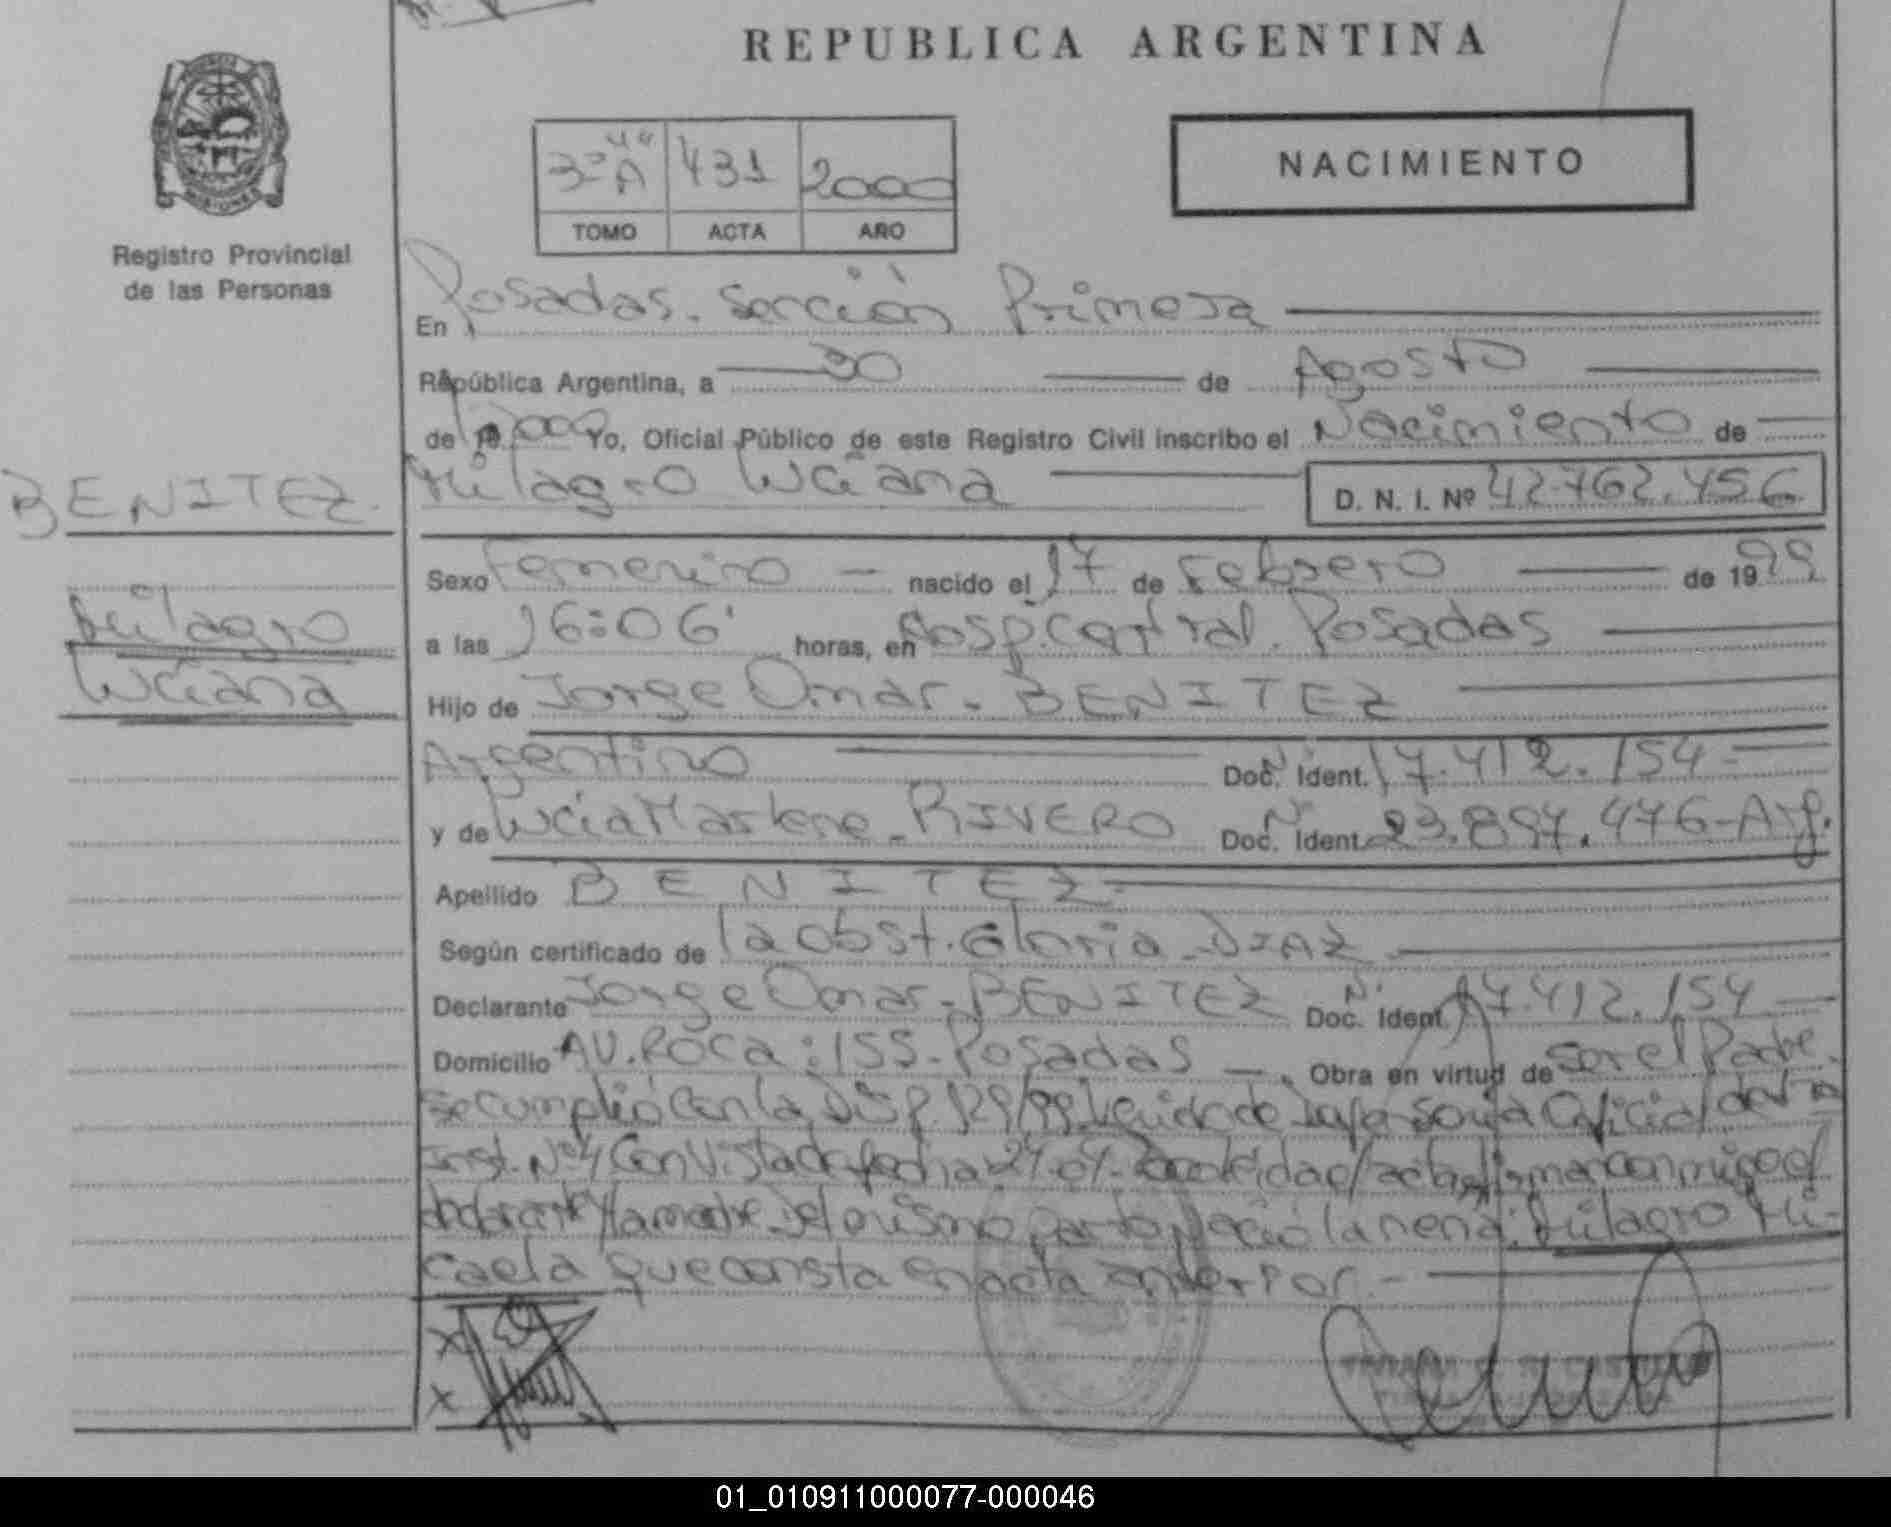 REPUBLICA ARGENTINA
NACIMIENTO
3º "A" 431 2000
TOMO ACTA AÑO
Registro Provincial
de las Personas
En Posadas. Sección Primera
República Argentina, a 30 de Agosto
de 2000 Yo, Oficial Público de este Registro Civil inscribo el Nacimiento de
BENITEZ
Milagro Luciana D. N. I. Nº 42.762.456
Sexo Femenino nacido el 17 de Febrero de 1999
Milagro
Luciana
a las 16:06' horas, en Hosp. Central. Posadas
Hijo de Jorge Omar. BENITEZ
Argentino Doc. Ident. Nº 17.412.154
y de Lucia Marlene. RIVERO Doc. Ident. Nº 23.897.476-Arg.
Apellido BENITEZ
Según certificado de la obst. Gloria DIAZ
Declarante Jorge Omar. BENITEZ Doc. Ident. Nº 17.412.154
Domicilio AV. ROCA: 155-Posadas Obra en virtud de ser el Padre.
Se cumplió con la DISP. 129/99. Oficial de la
Inst. Nº 4 Con Vista de fecha 24-04- Leida el acta firma conmigo el
declarante y la madre. Del mismo parto Nació la nena: Milagro Mi-
caela que consta en acta anterior.-
X
X
01_010911000077-000046